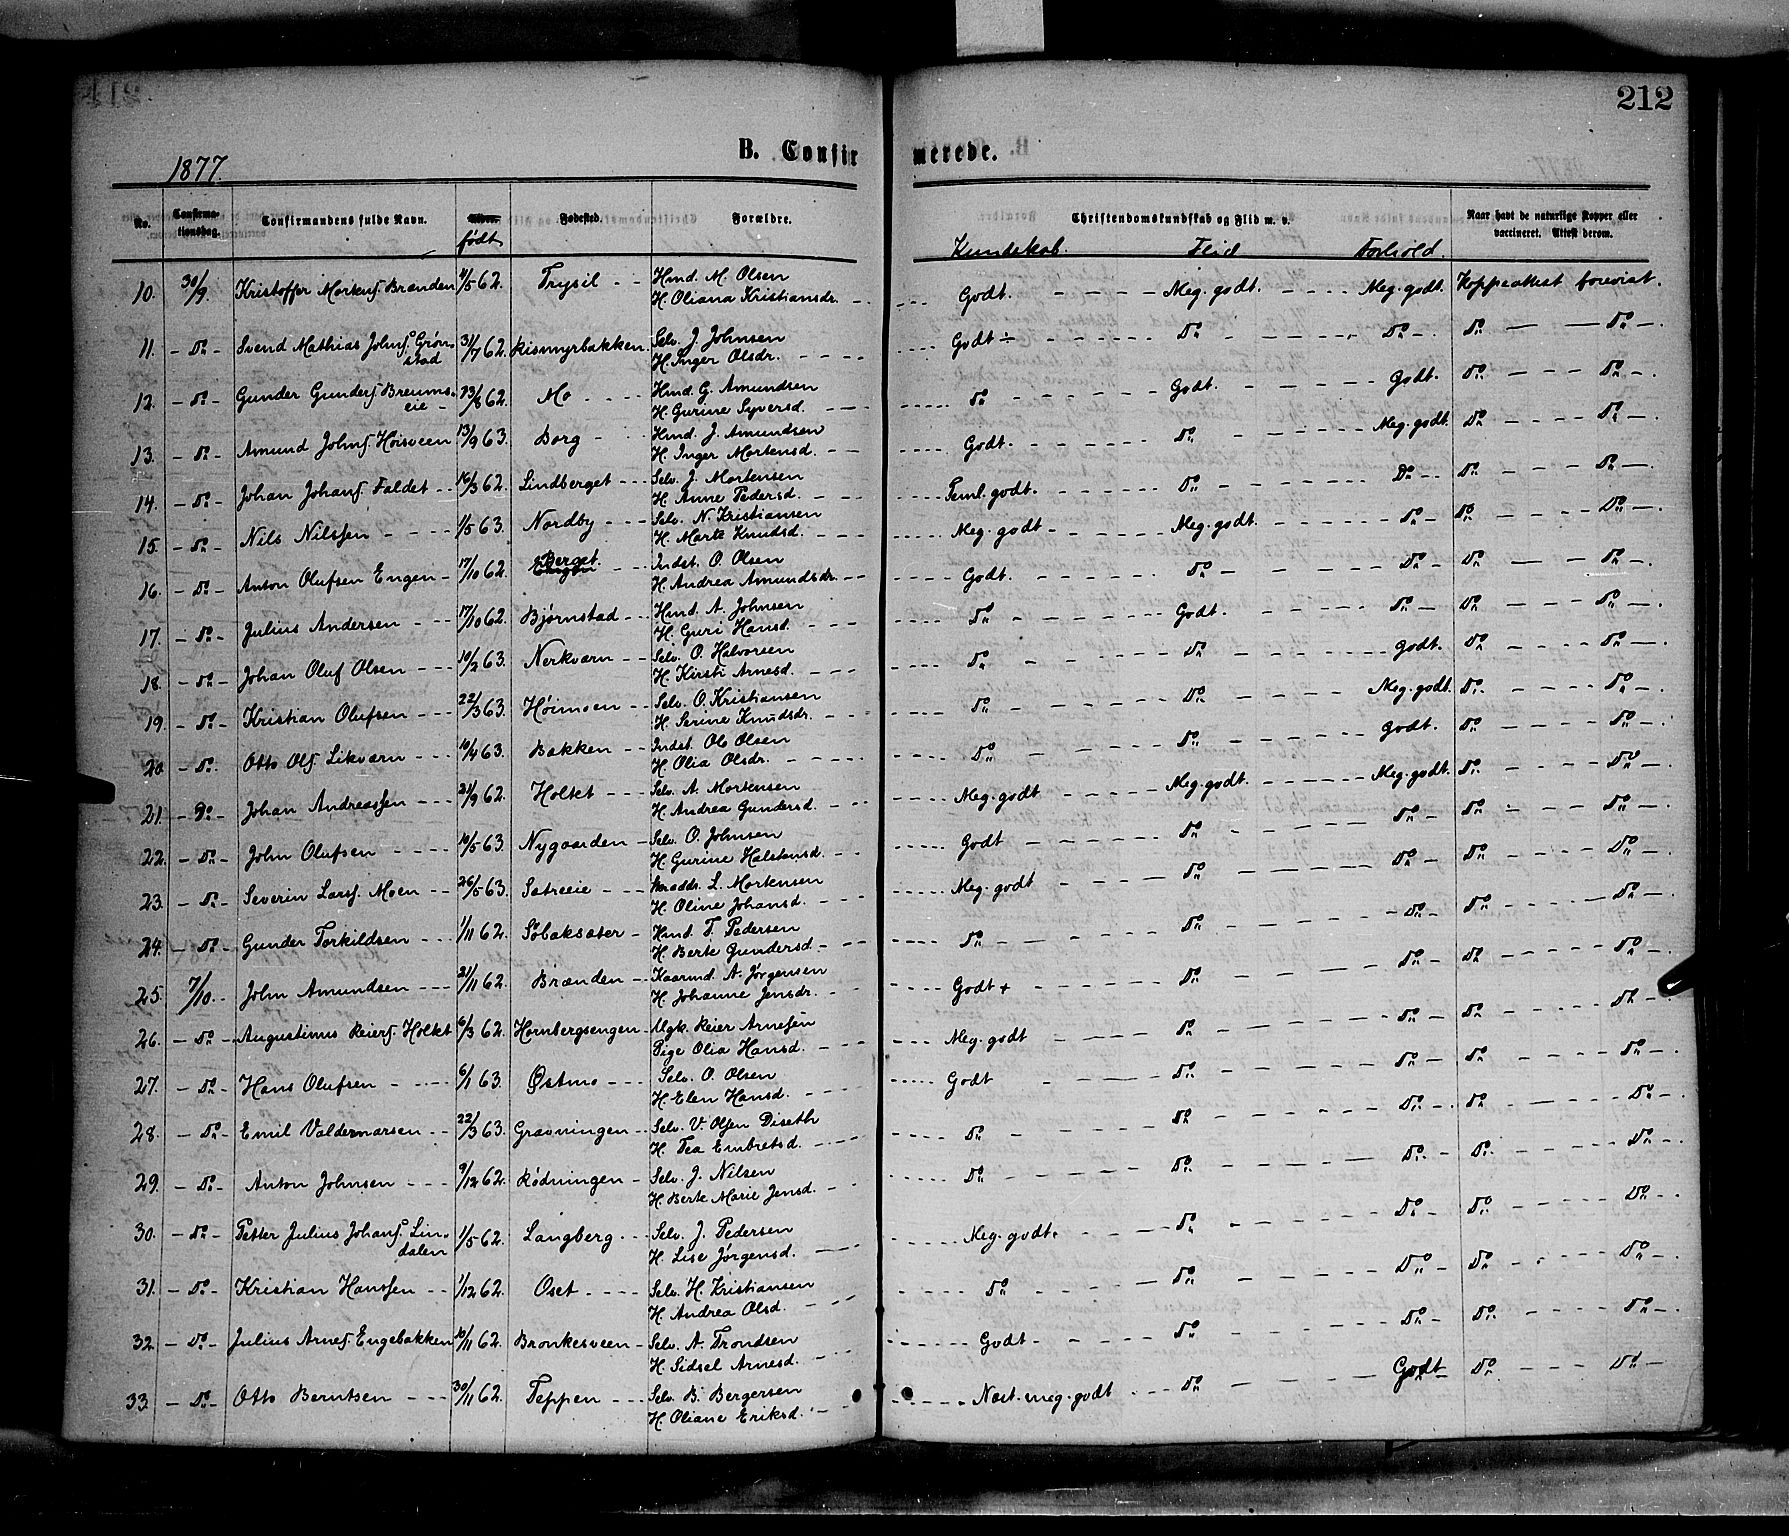 212
1877
B. Confirmerede.
No. Confirmationsdag. Confirmandens fulde Navn. Alder. født Fødested. Forældre. Christendomskundskab og Flid m. v. Naar havt de naturlige Kopper eller vaccineret. Attest derom.
Kundskab. Flid Forhold.
10. 30/9. Kristoffer Markusſ. Brænden 4/5 62. Trysil Hmd. M. Olsen Godt. Meg. godt. Meg. godt. Koppeattest forevist.
H. Oliana Kristiansdr.
11. Do Svend Mathias Johnſ. Grøn- 31/7 62. Rismyrbakken Selv. J. Johnsen Godt ÷ Do Do Do Do
stad H. Inger Olsdr.
12. Do Gunder Gunderſ. Breums- 23/6 62. Mo Hmd. G. Amundsen Do Godt. Godt. Do Do
eie H. Gurine Syversd.
13. Do Amund Johnſ. Høisveen 13/9 63. Borg Hmd. J. Amundsen Godt. Do Meg. godt. Do Do
H. Inger Mortensd.
14. Do Johan Johanſ. Faldet 16/3 62. Lindberget Selv. J. Mortensen Teml. godt. Do Do Do Do
H. Anne Pedersd.
15. Do Nils Nilsſen 1/5 63. Nordby Selv. N. Kristiansen Meg. godt Meg. godt. Do Do Do
H. Marte Knudsd.
16. Do Anton Olufsen Engen 17/10 62. Berget. Engen Indst. O. Olsen Godt. Do Do Do Do
H. Andrea Amundsdr.
17. Do Julius Andersen 17/10 62. Bjørnstad Hmd. A. Johnsen Do Godt. Do Do Do
H. Guri Hansd.
18. Do Johan Oluf Olsen 10/2 63. Nerkværn Selv. O. Halvorsen Do Do godt. Do Do
H. Kirsti Arnesd.
19. Do Kristian Olufsen 22/3 63. Høimoen Selv. O. Kristiansen Do Do Meg. godt. Do Do
H. Serine Knudsdr.
20. Do Otto Olſ. Likværn 10/4 63. Bakken Indst. Ole Olsen Do Do godt. Do Do
H. Olia Olsdr.
21. Do Johan Andreasſen 21/9 62. Holtet Selv. A. Mortensen Meg. godt Meg. godt. Meg. godt. Do Do
H. Andrea Gundersd.
22. Do John Olufsen 10/5 63. Nygaarden Selv. O. Johnsen Godt Do Do Do Do
H. Gurine Halstensd.
23. Do Severin Larsſ. Moen 26/5 63. Sætreeie L. Mortensen Meg. godt Do Do Do Do
H. Oline Johansd.
24. Do Gunder Torkildsen 1/11 62. Søbaksæter Hmd. T. Pedersen Do Do Do Do Do
H. Berte Gundersd.
25. 7/10. John Amundsen 21/11 62. Brænden Kaarmd. A. Jørgensen Godt + Do Do Do Do
H. Johanne Jensdr.
26. Do Augustinus Reierſ. Holtet 6/3 62. Hornbergsengen Ugk. Reier Arnesen Meg. godt Do Do Do Do
Pige Olia Hansd.
27. Do Hans Olufsen 6/1 63. Østmo Selv. O. Olsen Godt Do Do Do Do
H. Elen Hansd.
28. Do Emil Valdemarsen 22/3 63. Gravningen Selv. V. Olſen Diseth Do Do Do Do Do
H. Tea Embretsd.
29. Do Anton Johnsen 9/12 62. Rødningen Selv. J. Nilsen Do Do Do Do Do
H. Berte Marie Jensd.
30. Do Petter Julius Johanſ. Lin- 1/5 62. Langberg Selv. J. Pedersen Meg. godt. Do Do Do Do
dalen H. Lise Jørgensd.
31. Do Kristian Hansſen 1/12 62. Oset Selv. H. Kristiansen Do Do Do Do Do
H. Andrea Olsd.
32. Do Julius Arneſ. Engebakken 10/11 62. Bronkesveen Selv. A. Trondsen Godt Do Do Do Do
H. Sidsel Arnesd.
33. Do Otto Berntsen 30/11 62. Teppen Selv. B. Bergersen Næst. meg. godt Do Godt Do Do
H. Oliane Eriksd.